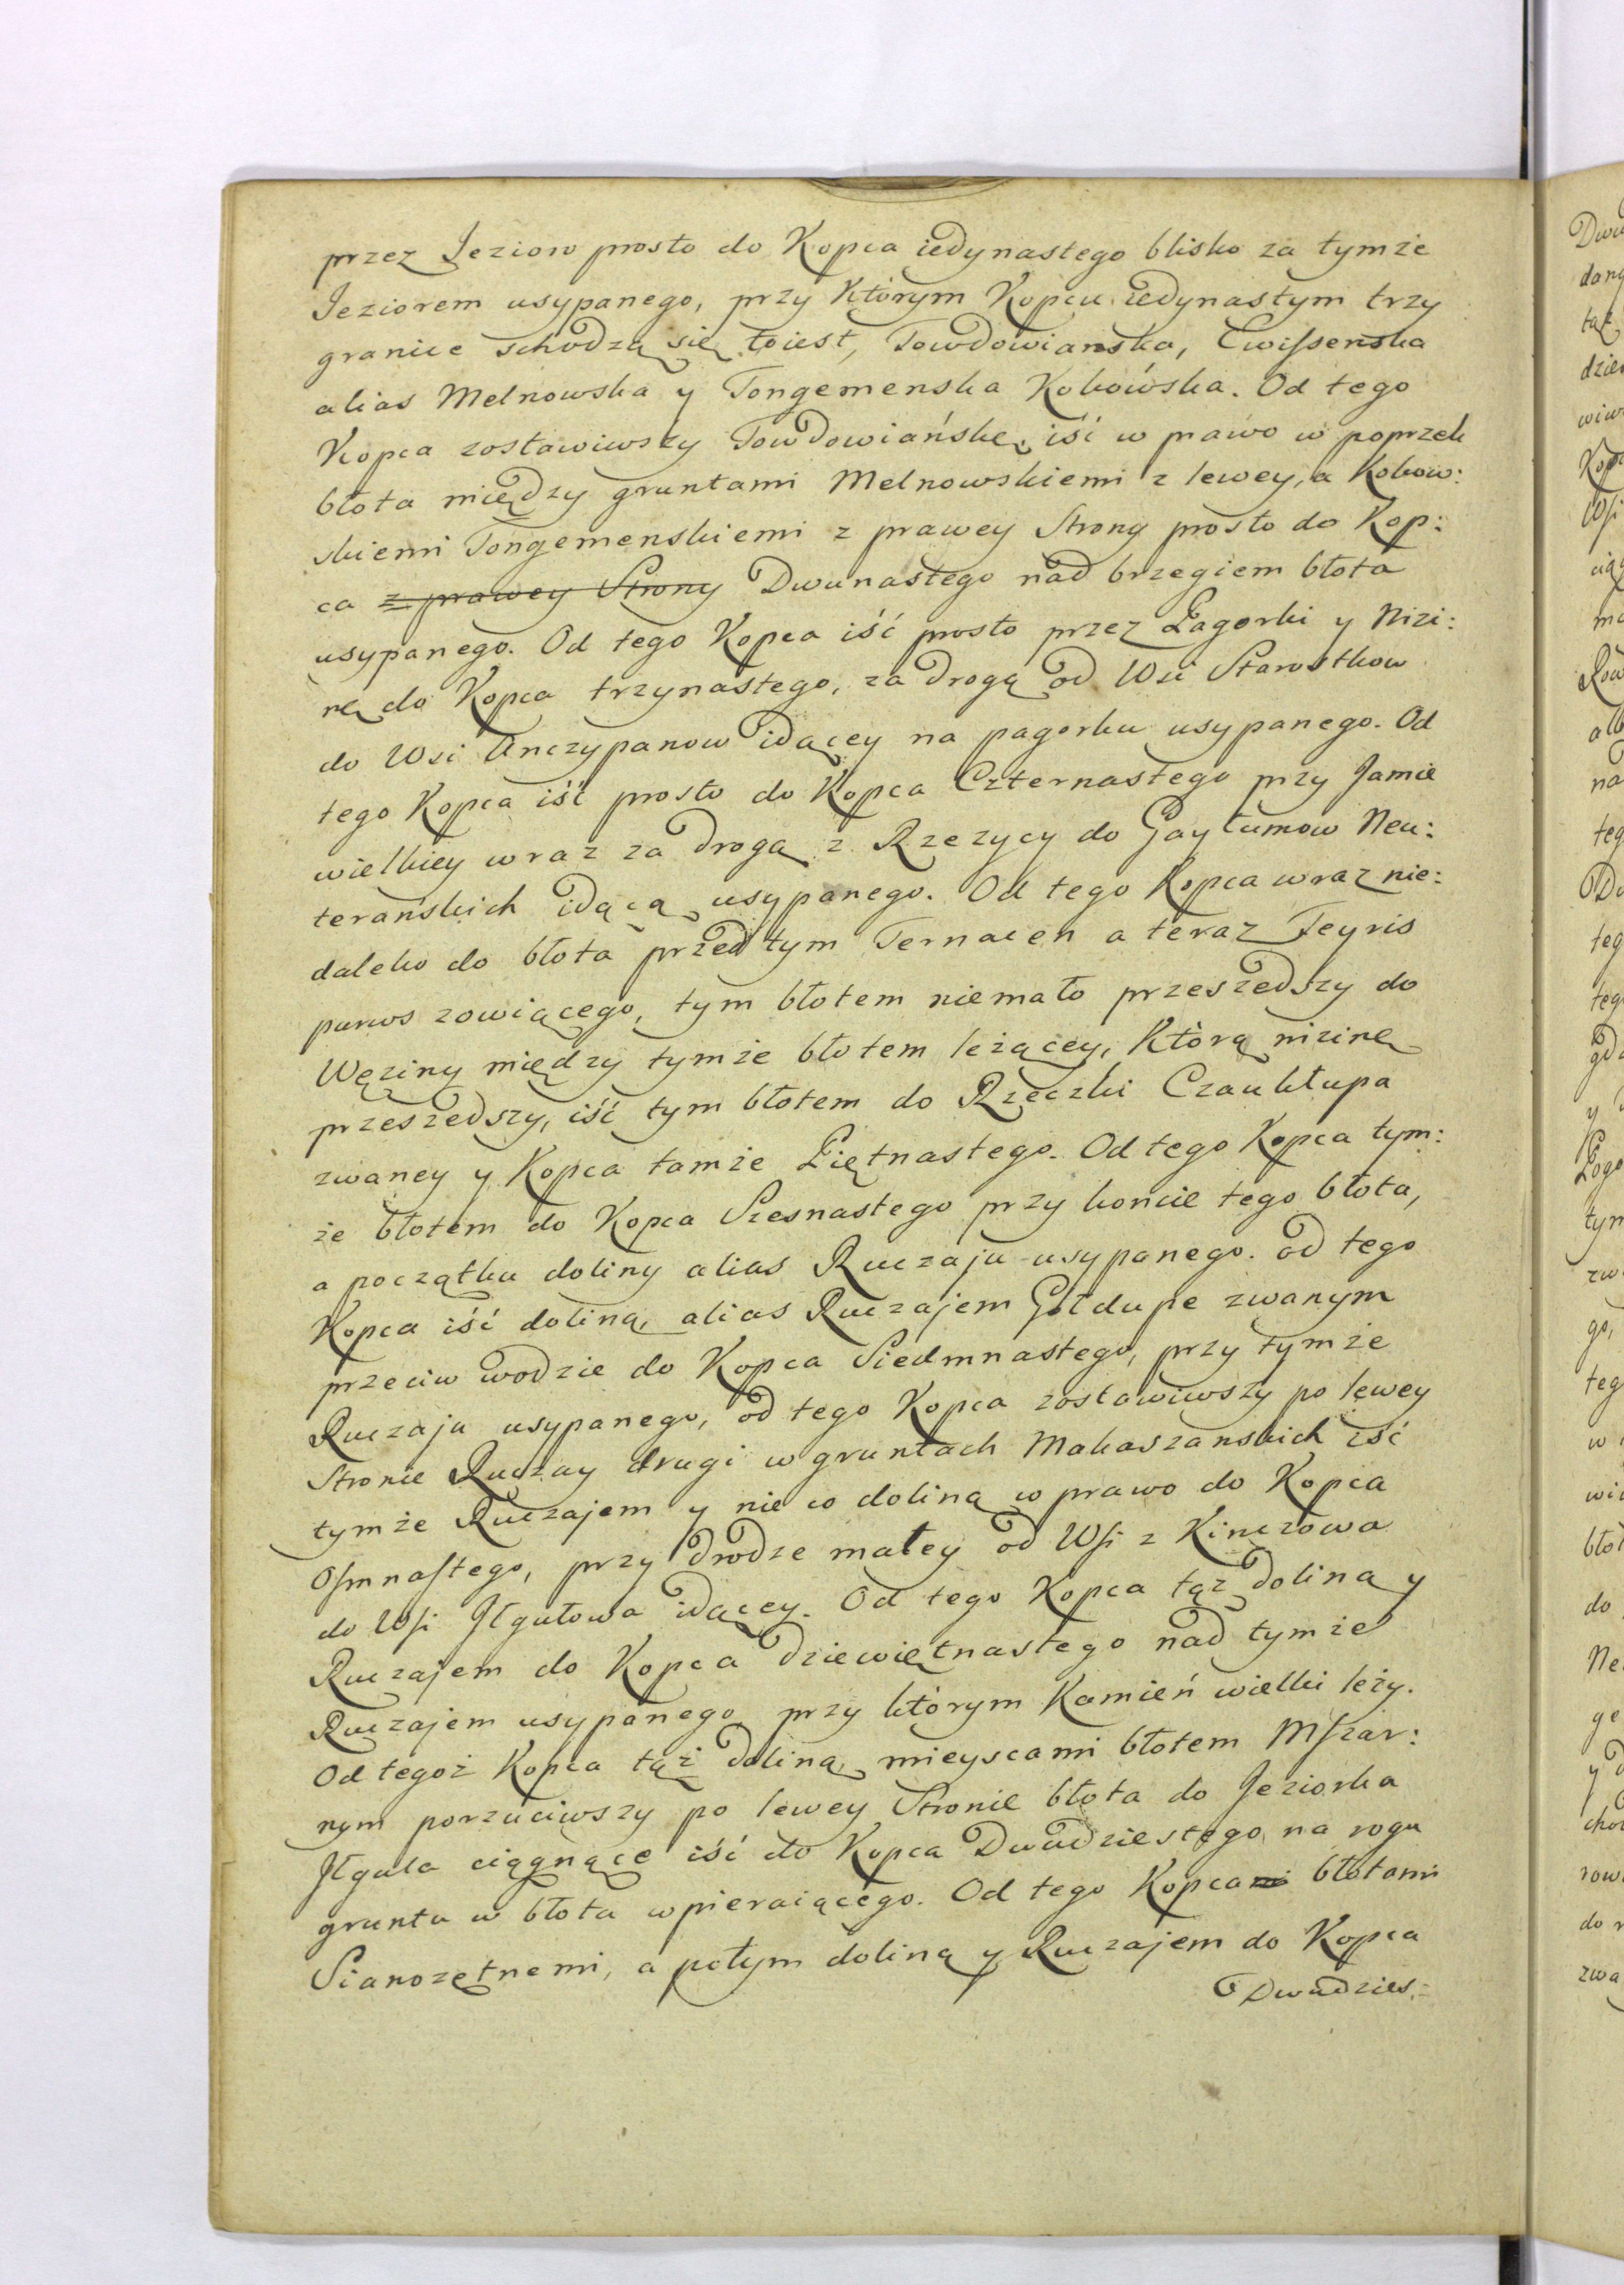 przez Jezioro prosto do Kopca iedynastego blisko za tymże
Jeziorem usypanego, przy którym Kopcu iedynastym trzy
granice schodzą się toiest, Towdowianska, Cwiſsenska
alias Melnowska y Tongemenska Kobówska. Od tego
Kopca zostawiwszy Towdowiańskę iść w prawo w poprzek
błota między gruntami Melnowskiemi z lewey, a Kobow:
skiemi Tongemenskiemi z prawey Strony prosto do Kop:
ca z prawey Strony Dwunastego nad brzegiem błota
usypanego. Od tego Kopca iść prosto przez Pagorki y Nizi:
nę do Kopca trzynastego, za drogą od Wsi Starostkow
do Wsi Anczypanow idącey na pagorku usypanego. Od
tego Kopca iść prosto do Kopca Czternastego przy Jamie
wielkiey wraz za drogą z Rzezycy do Gaytumow Neu:
terańskich idącą usypanego. Od tego Kopca wraz nie:
daleko do błota przed tym Ternacen a teraz Teyris
purws zowiącego, tym błotem niemało przeszedszy do
Węziny między tymże błotem leżącey, którą nizinę
przeszedszy, iść tym błotem do Rzeczki Czaukłupa
zwaney y Kopca tamże Piętnastego. Od tego Kopca tym:
że błotem do Kopca Szesnastego przy koncie tego błota,
a początku doliny alias Ruczaju usypanego. od tego
Kopca iść doliną, alias Ruczajem Gołdupe zwanym
przeciw wodzie do Kopca Siedmnastego, przy tymże
Ruczaju usypanego, od tego Kopca zostawiwszy po lewey
Stronie Ruczay drugi w gruntach Makaszanskich iść
tymże Ruczajem y nieco doliną w prawo do Kopca
Oſmnaſtego, przy drodze małey od Wſi z Kinczowa
do Wſi Jłgułowa idącey. Od tego Kopca tąż doliną y
Ruczajem do Kopca dziewiętnastego nad tymże
Ruczajem usypanego przy którym Kamień wielki leży.
Od tegoż Kopca tąż doliną, mieyscami błotem Mſzar:
nym porzuciwszy po lewey Stronie błota do Jeziorka
Jłgula ciągnące iść do Kopca Dwudziestego na rogu
gruntu w błota wpieraiącego. Od tego Kopca błotami
Sianożętnemi, a potym doliną y Ruczajem do Kopca
Dwudzies: